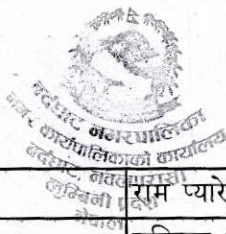 बर्दघाट नगरपालिका
नगर कार्यपालिकाको कार्यालय
बर्दघाट, नवलपरासी
लुम्बिनी प्रदेश
नेपाल
राम प्यारे